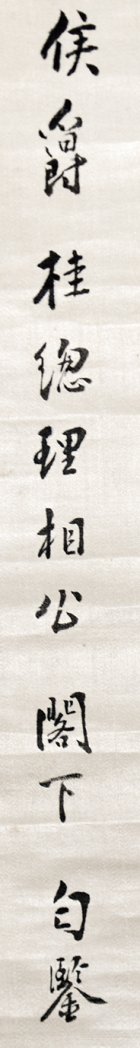 侯爵桂總理相公閣下匄鑒